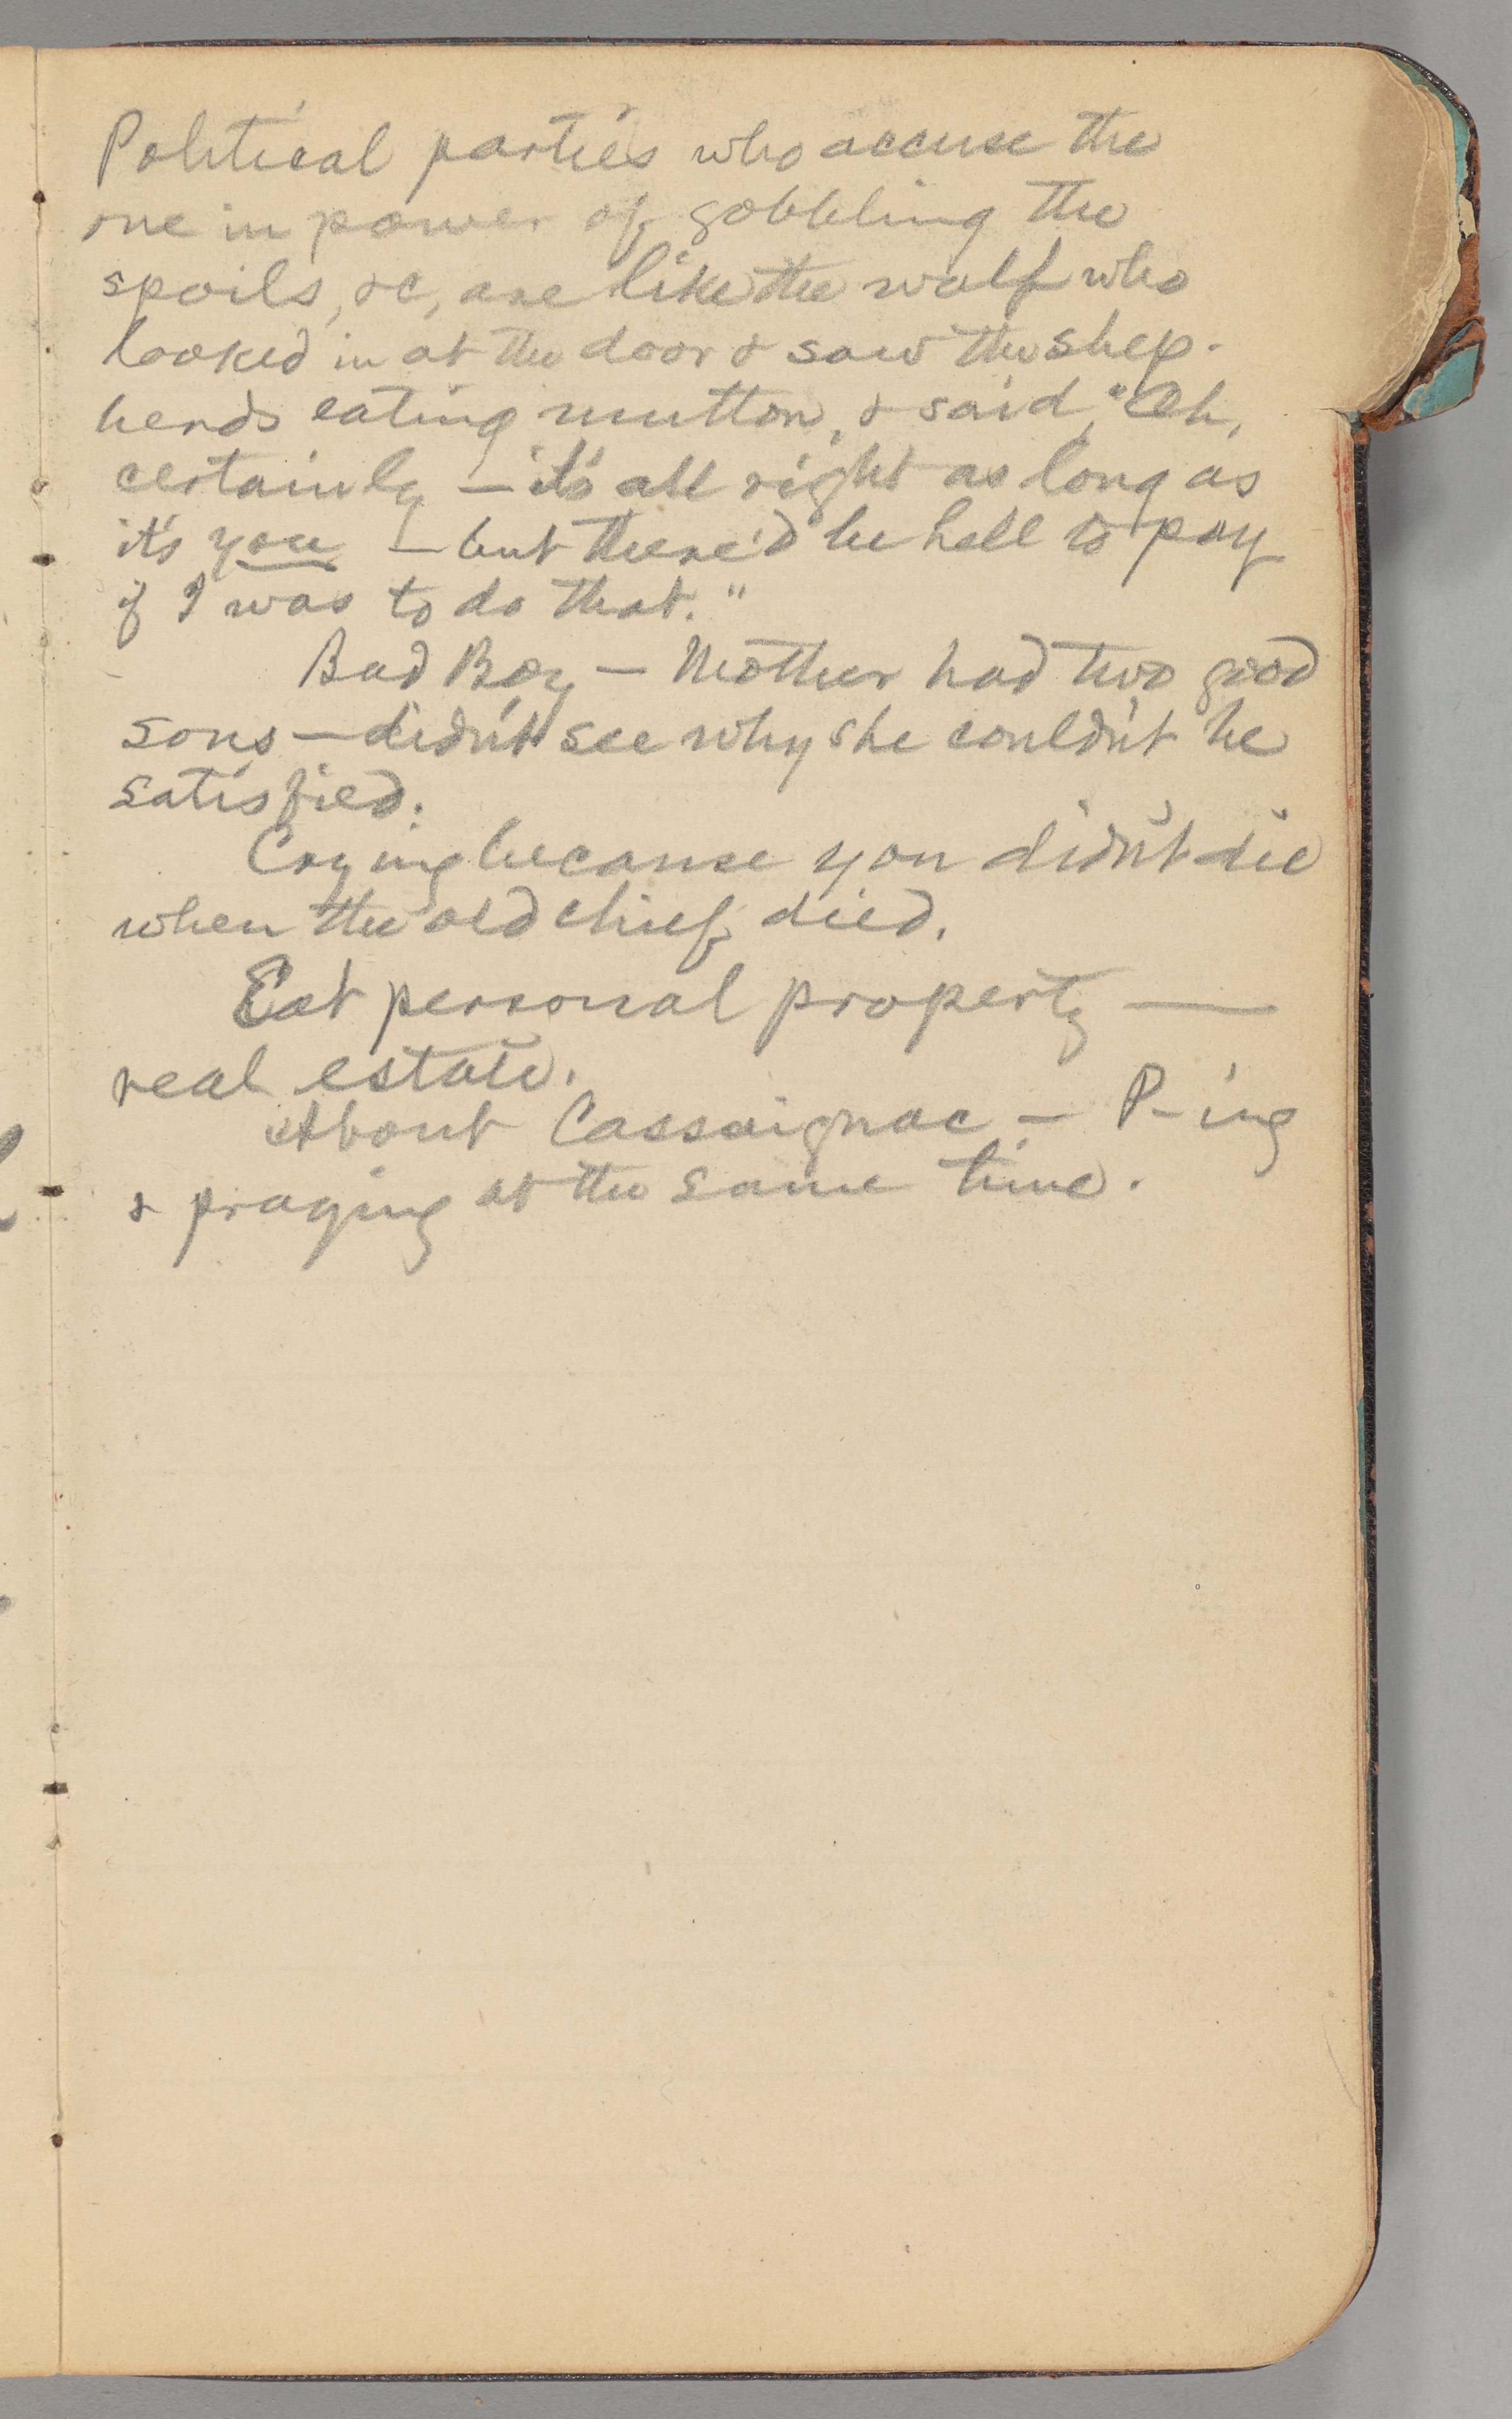 Political parties who accuse the
one in power of gobbling the
spoils, &c, are like the wolf who
looked in at the door & saw the shep-
herds eating mutton, & said, "Oh,
certainly — it's all right as long as
it's you — but there'd be hell to pay
if I was to do that."
Bad Boy — Mother had two good
sons — didn't see why she couldn't be
satisfied.
Crying because you didn't die
when the old chief died.
Eat personal property —
real estate.
About Cassaignac — P-ing
& praying at the same time.